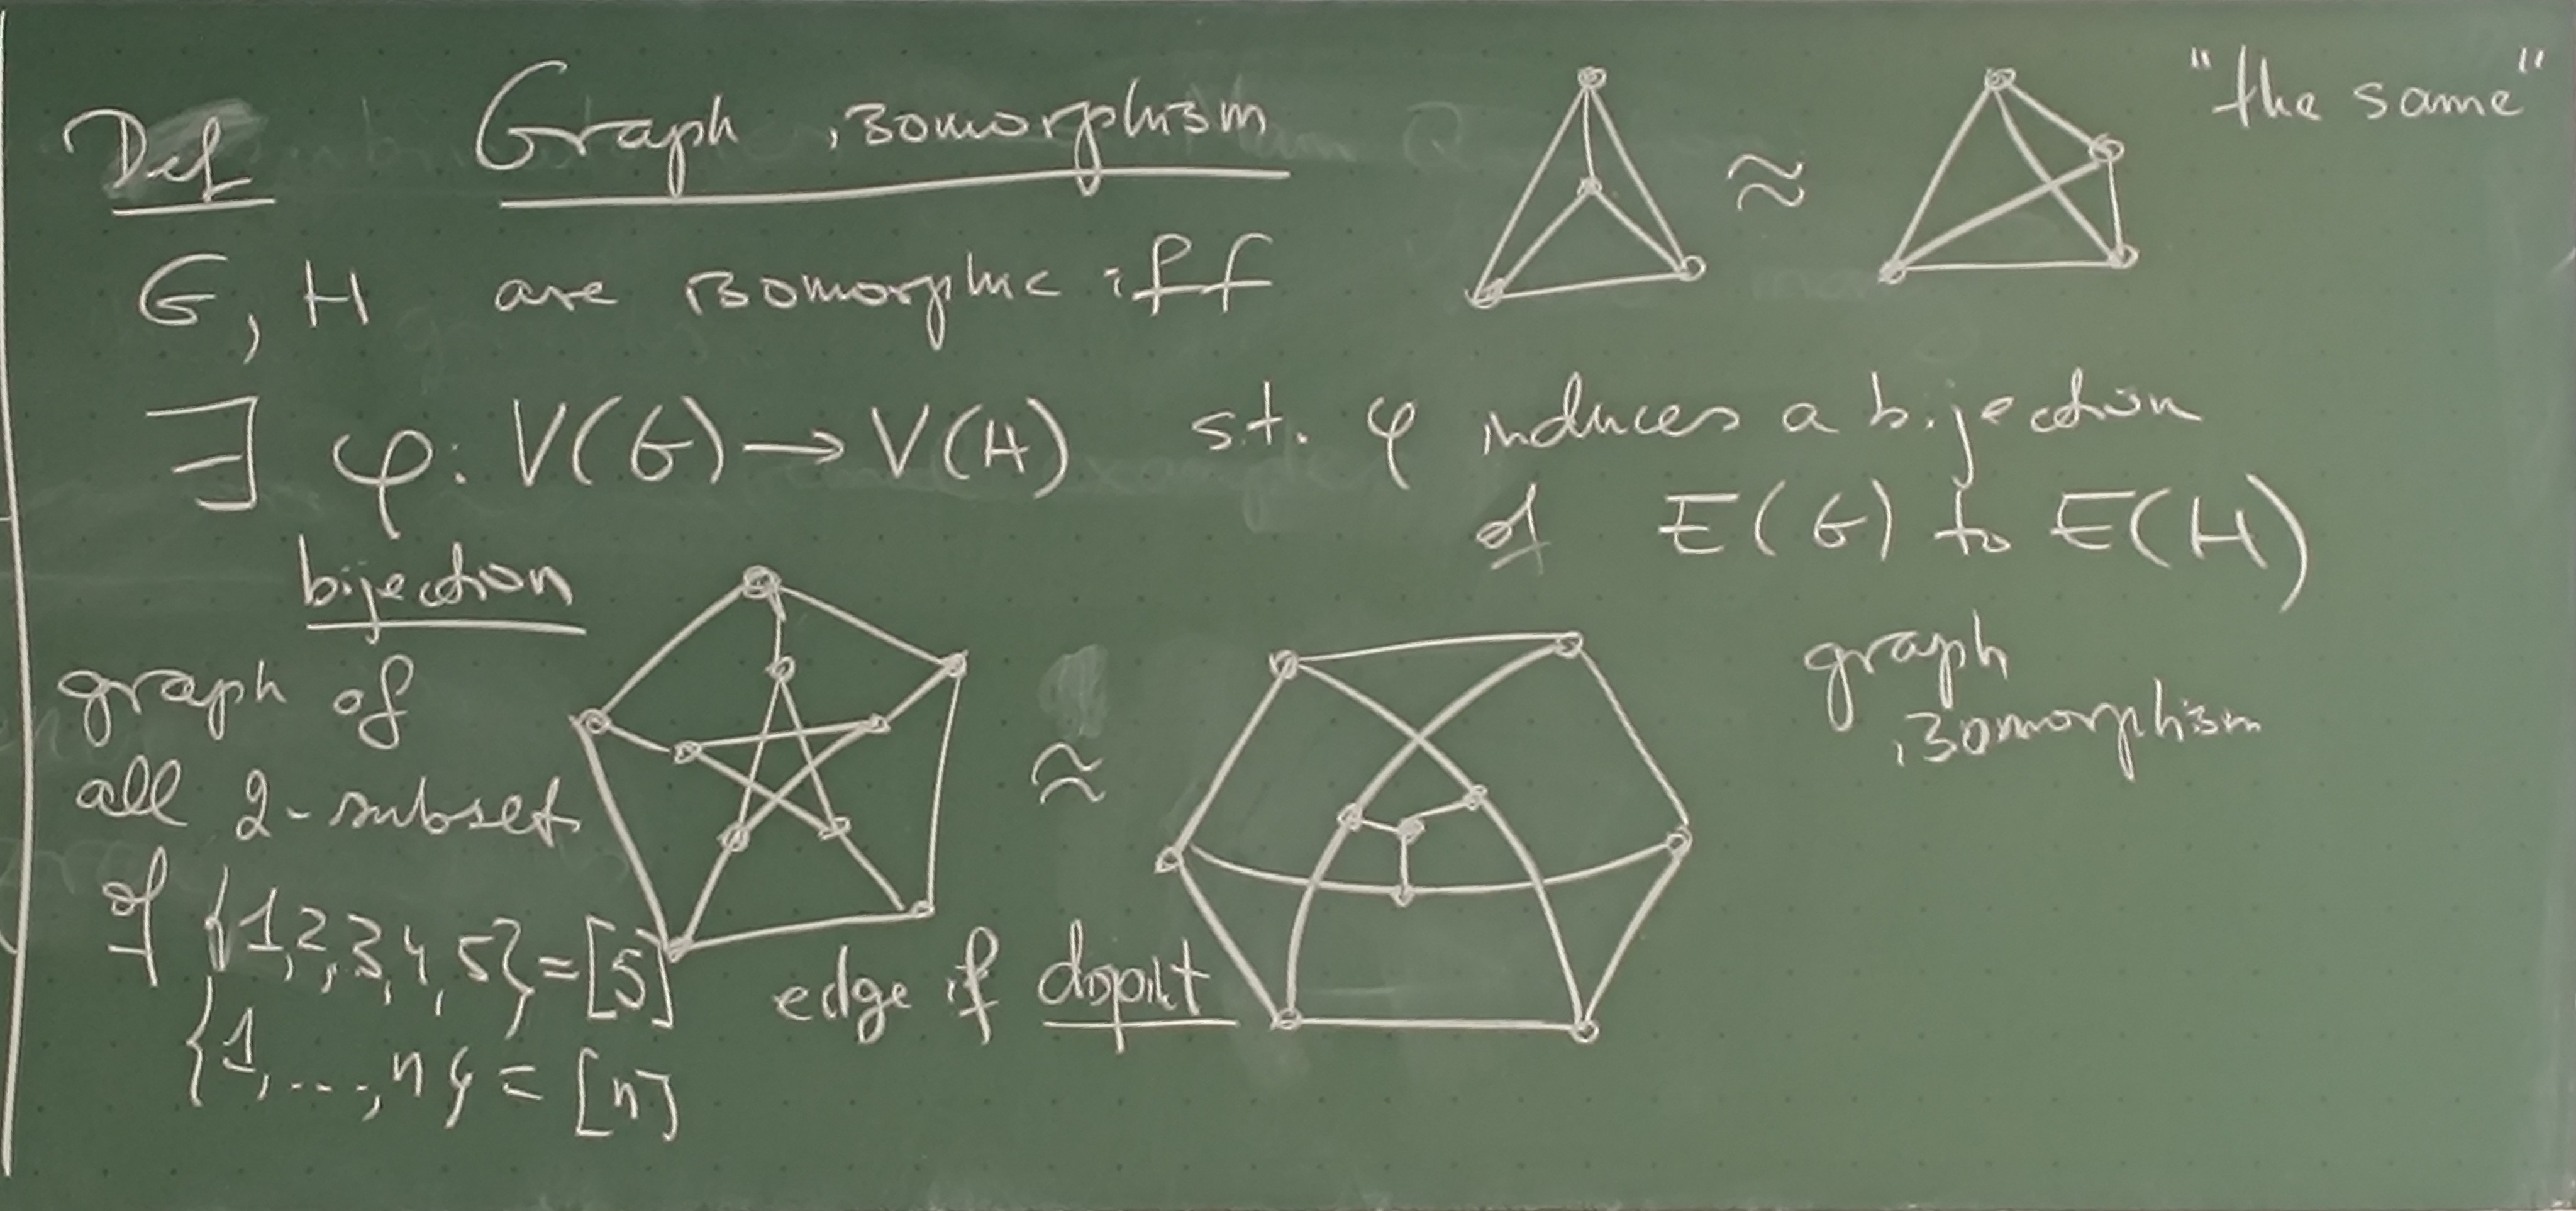 Def Graph isomorphism
"the same"
≈
G, H are isomorphic iff
∃ φ: V(G) → V(H) s.t. φ induces a bijection
of E(G) to E(H)
bijection
graph of
all 2-subset
of {1,2,3,4,5} = [5]
{1,...,n} = [n]
≈
edge if disjoint
graph
isomorphism